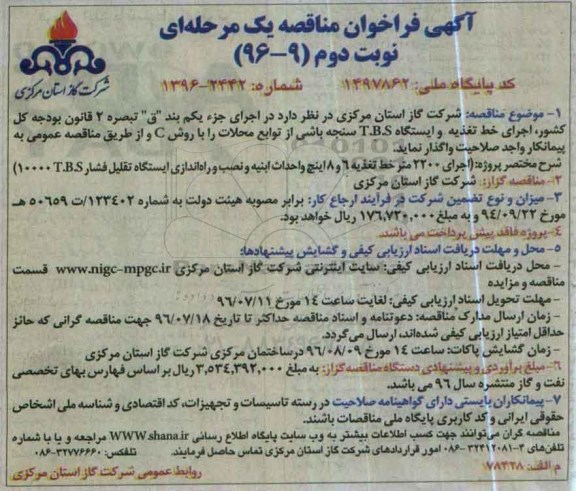 آگهی فراخوان مناقصه یک مرحله‌ای
نوبت دوم (۹-۹۶)
شرکت گاز استان مرکزی
کد پایگاه ملی: ۱۴۹۷۸۶۲ شماره: ۲۴۴۲-۱۳۹۶
۱- موضوع مناقصه: شرکت گاز استان مرکزی در نظر دارد در اجرای جزء یکم بند "ق" تبصره ۲ قانون بودجه کل
کشور، اجرای خط تغذیه و ایستگاه T.B.S سنجه باشی از توابع محلات را با روش C و از طریق مناقصه عمومی به
پیمانکار واجد صلاحیت واگذار نماید.
شرح مختصر پروژه: (اجرای ۲۲۰۰ متر خط تغذیه ۶ و ۸ اینچ واحداث ابنیه و نصب و راه‌اندازی ایستگاه تقلیل فشار T.B.S ۱۰۰۰۰)
۲- مناقصه گزار: شرکت گاز استان مرکزی
۳- میزان و نوع تضمین شرکت در فرآیند ارجاع کار: برابر مصوبه هیئت دولت به شماره ۱۲۳۴۰۲/ت ۵۰۶۵۹ هـ
مورخ ۹۴/۰۹/۲۲ و به مبلغ ۱۷۶,۷۲۰,۰۰۰ ریال خواهد بود.
۴- پروژه فاقد پیش پرداخت می باشد.
۵- محل و مهلت دریافت اسناد ارزیابی کیفی و گشایش پیشنهادها:
- محل دریافت اسناد ارزیابی کیفی: سایت اینترنتی شرکت گاز استان مرکزی www.nigc-mpgc.ir قسمت
مناقصه و مزایده
- مهلت تحویل اسناد ارزیابی کیفی: لغایت ساعت ۱۴ مورخ ۹۶/۰۷/۱۱
- زمان ارسال مدارک مناقصه: دعوتنامه و اسناد مناقصه حداکثر تا تاریخ ۹۶/۰۷/۱۸ جهت مناقصه گرانی که حائز
حداقل امتیاز ارزیابی کیفی شده‌اند، ارسال می‌گردد.
- زمان گشایش پاکات: ساعت ۱۴ مورخ ۹۶/۰۸/۰۹ درساختمان مرکزی شرکت گاز استان مرکزی
۶- مبلغ برآوردی و پیشنهادی دستگاه مناقصه‌گزار: به مبلغ ۳,۵۳۴,۳۹۲,۰۰۰ ریال بر اساس فهارس بهای تخصصی
نفت و گاز منتشره سال ۹۶ می باشد.
۷- پیمانکاران بایستی دارای گواهینامه صلاحیت در رسته تاسیسات و تجهیزات، کد اقتصادی و شناسه ملی اشخاص
حقوقی ایرانی و کد کاربری پایگاه ملی مناقصات باشند.
مناقصه گران می‌توانند جهت کسب اطلاعات بیشتر به وب سایت پایگاه اطلاع رسانی WWW.shana.ir مراجعه و یا با شماره
تلفن‌های ۳-۳۲۴۱۲۰۸۱-۰۸۶ امور قراردادهای شرکت گاز استان مرکزی تماس حاصل فرمایند. تلفکس: ۳۲۷۷۶۶۶۰-۰۸۶
م الف: ۷۸۴۲۸ روابط عمومی شرکت گاز استان مرکزی